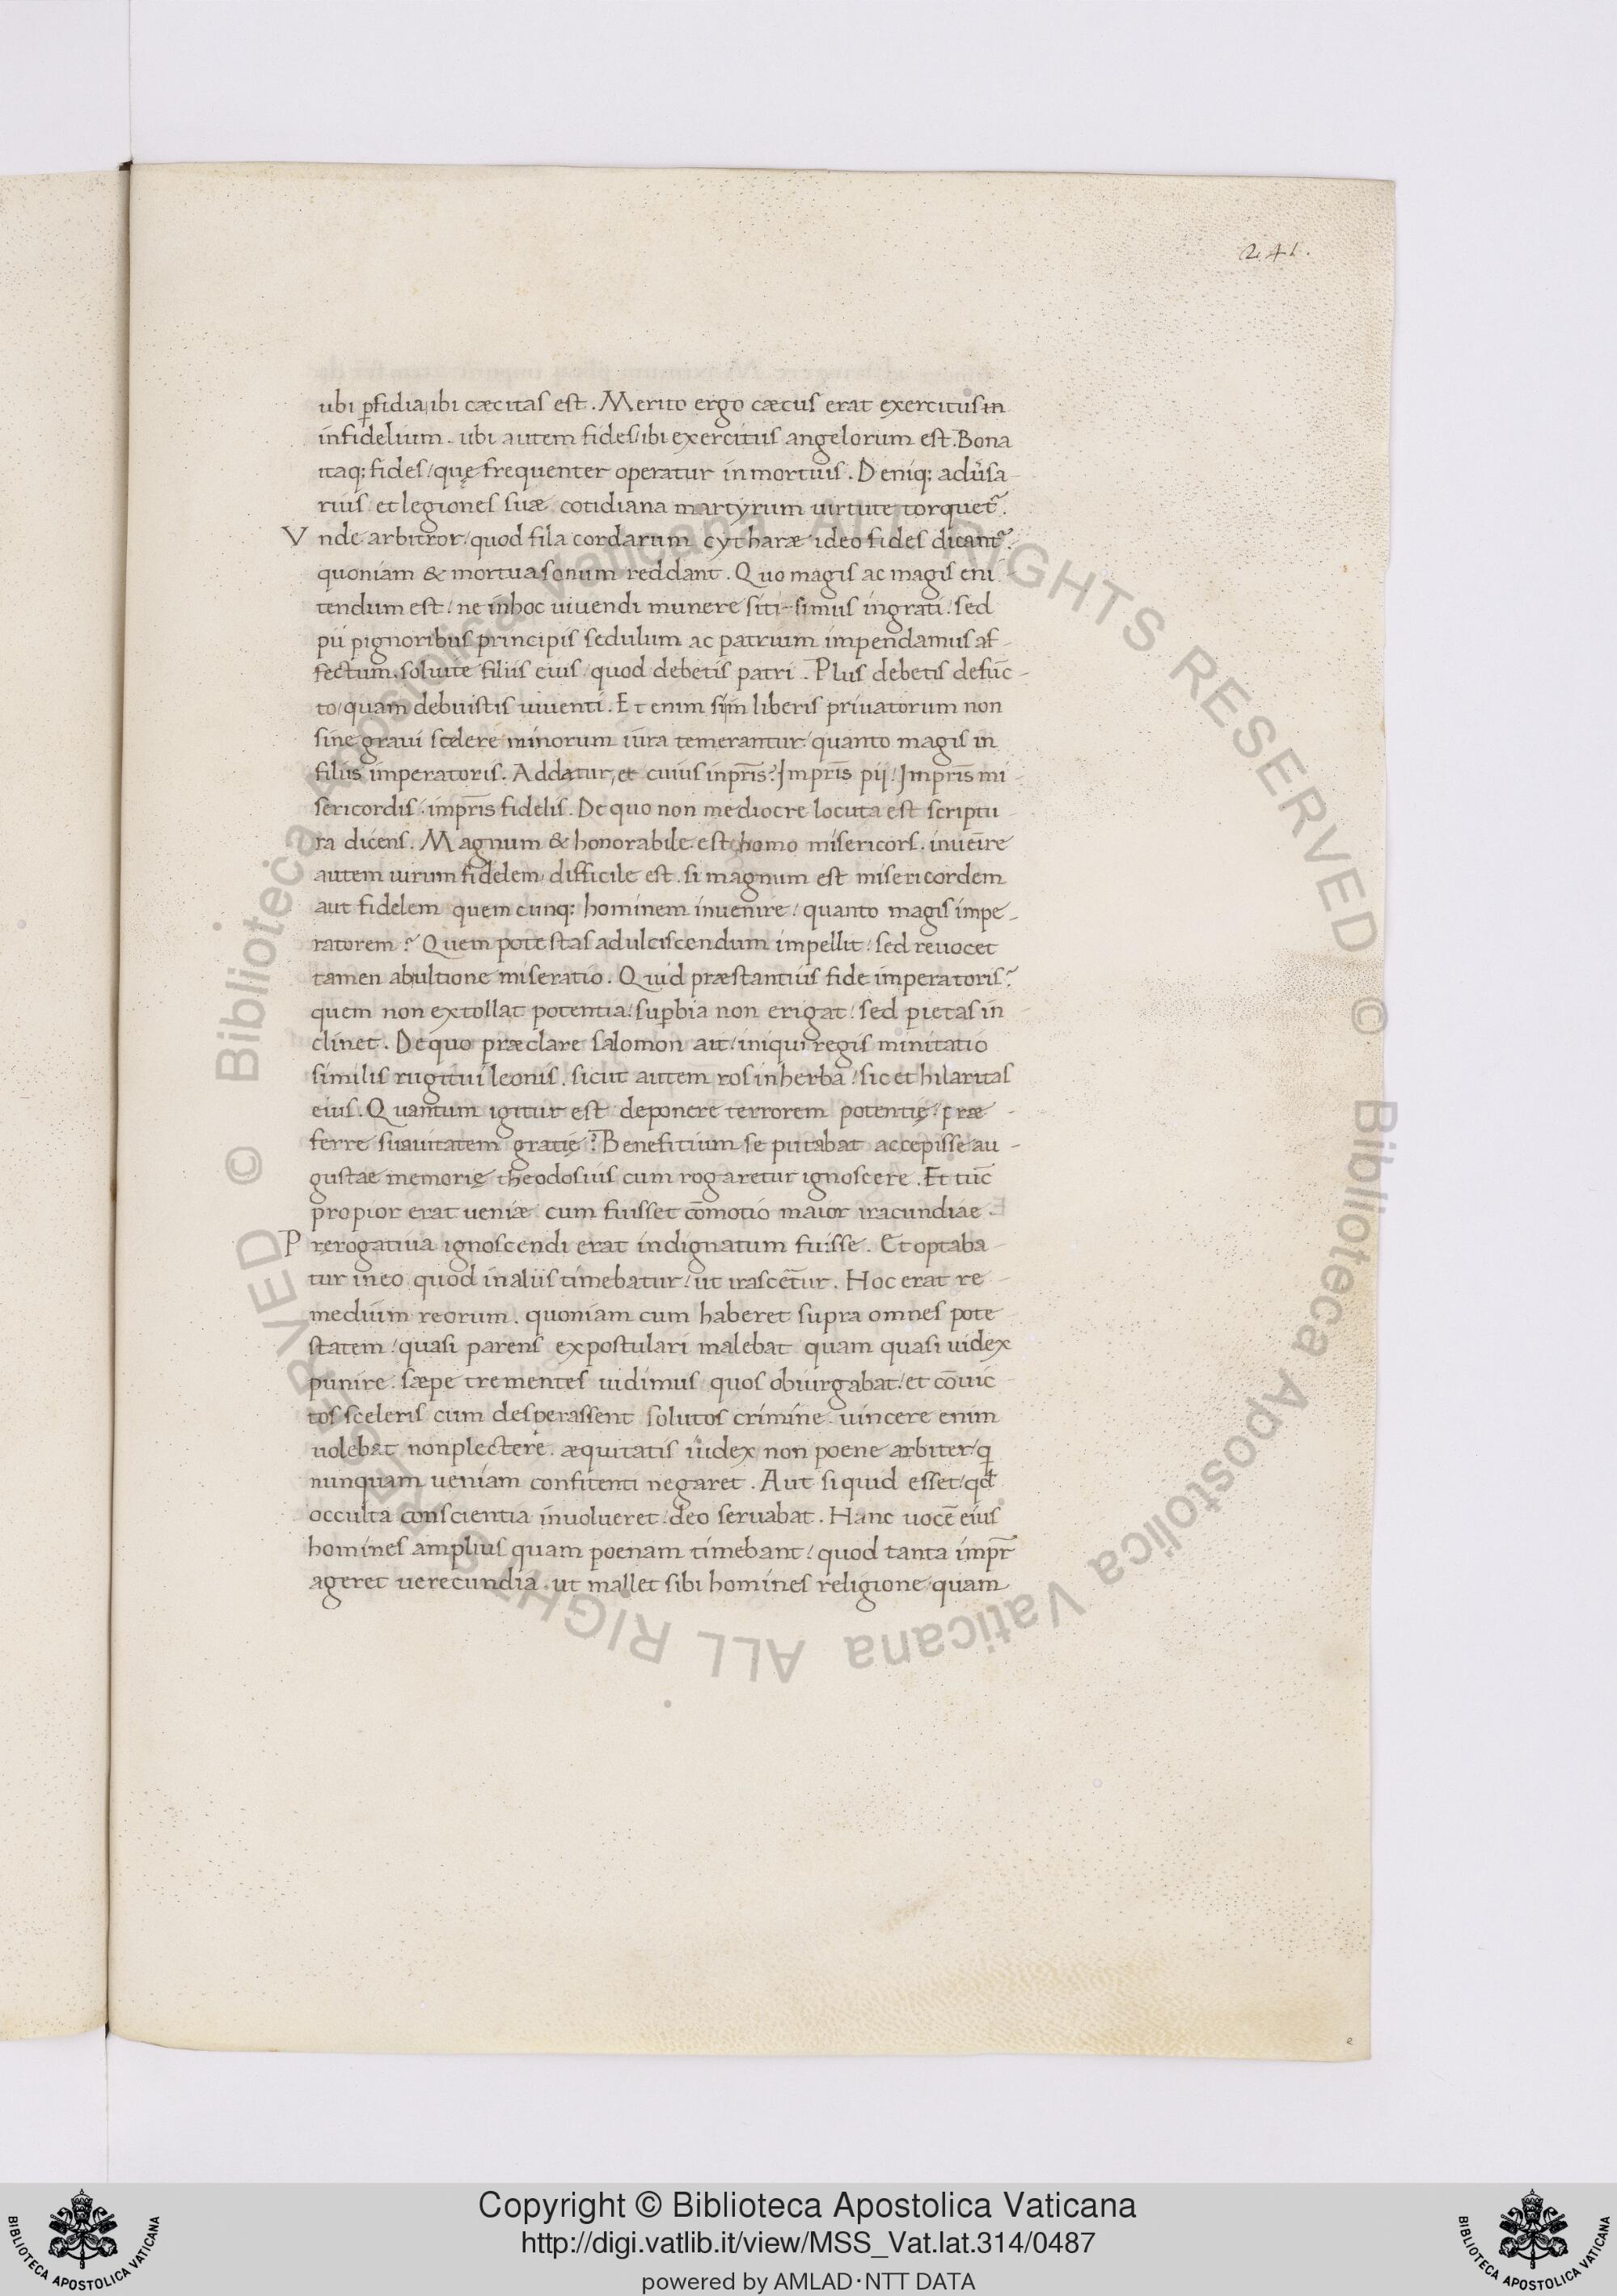 241.
ubi ꝑfidia, ibi cæcitas est. Merito ergo cæcus erat exercitus in
infidelium. ubi autem fides/ ibi exercitus angelorum est. Bona
itaq; fides/ quę frequenter operatur in mortuis. Deniq; adu̾sa-
rius et legiones suæ cotidiana martyrum uirtute torquet᷑.
Vnde arbitror/ quod fila cordarum cytharæ ideo fides dicant᷑.
quoniam & mortua sonum reddant. Quo magis ac magis eni-
tendum est/ ne in hoc uiuendi munere siti-simus ingrati/ sed
pii pignoribus principis sedulum ac patrium impendamus af-
fectum. soluite filiis eius/ quod debetis patri. Plus debetis defūc-
to/ quam debuistis uiuenti. Et enim si in liberis priuatorum non
sine graui scelere minorum iura temerantur/ quanto magis in
filiis imperatoris. Addatur, et cuius inpr̄is? Impr̄is pij/ Impr̄is mi-
sericordis. impr̄is fidelis. De quo non mediocre locuta est scriptu-
ra dicens. Magnum & honorabile est homo misericors. inuēire
autem uirum fidelem difficile est. si magnum est misericordem
aut fidelem quem cunq; hominem inuenire/ quanto magis impe-
ratorem? Quem potestas ad ulciscendum impellit/ sed reuocet
tamen ab ultione miseratio. Quid præstantius fide imperatoris?
quem non extollat potentia/ suꝑbia non erigat/ sed pietas in-
clinet. De quo præclare salomon ait/ iniqui regis minitatio
similis rugitui leonis. sicut autem ros in herba/ sic et hilaritas
eius. Quantum igitur est deponere terrorem potentię/ præ-
ferre suauitatem gratię? Benefitium se putabat accepisse au-
gustae memorię theodosius cum rogaretur ignoscere. Et tūc
propior erat ueniæ cum fuisset cōmotio maior iracundiae.
Prerogatiua ignoscendi erat indignatum fuisse. Et optaba-
tur in eo quod in aliis timebatur/ ut irascēt̄ur. Hoc erat re-
medium reorum. quoniam cum haberet supra omnes pote
statem/ quasi parens expostulari malebat quam quasi uidex
punire. sæpe trementes uidimus quos obiurgabat/ et cōuic
tos sceleris cum desperassent solutos crimine. uincere enim
uolebat non plectere. æquitatis iudex non poene arbiter/ q
nunquam ueniam confitenti negaret. Aut si quid esset/ qđ
occulta conscientia inuolueret. deo seruabat. Hanc uocē eius
homines amplius quam poenam timebant/ quod tanta impr̄
ageret uerecundia. ut mallet sibi homines religione quam
2
© Biblioteca Apostolica Vaticana ALL RIGHTS RESERVED © Biblioteca Apostolica Vaticana ALL RIGHTS RESERVED
Copyright © Biblioteca Apostolica Vaticana
http://digi.vatlib.it/view/MSS_Vat.lat.314/0487
powered by AMLAD·NTT DATA
BIBLIOTECA APOSTOLICA VATICANA
BIBLIOTECA APOSTOLICA VATICANA